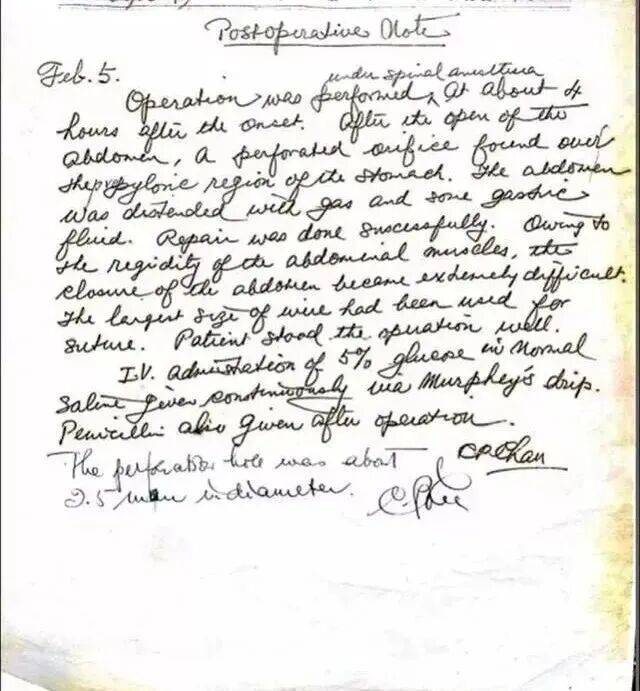 Postoperative Note
Feb. 5.
under spinal anesthesia
Operation was performed, At about 4
hours after the onset. After the open of the
Abdomen, A perforated orifice found over
the pyloric region of the stomach. The abdomen
was distended with gas and some gastric
fluid. Repair was done successfully. Owing to
the regidity of the abdominal muscles, the
closure of the abdomen became extremely difficult.
The largest size of wire had been used for
suture. Patient stood the operation well.
I.V. admistration of 5% glucose in Normal
Saline given continuously via Murphey's drip.
Penicillin also given after operation.
The perforation hole was about
2.5 mm in diameter.
C.P. Chan